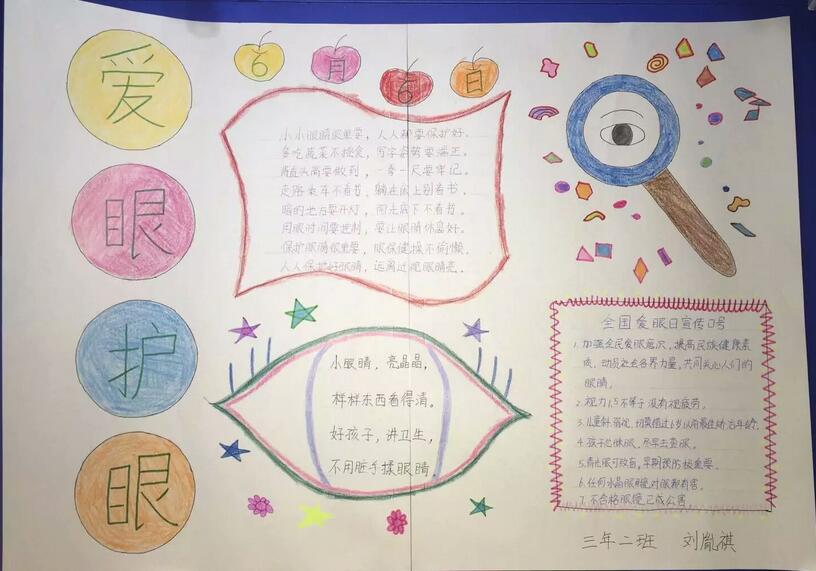 爱
眼
护
眼
6
月
6
日
小小眼睛很重要，人人都要保护好。
多吃蔬菜不挑食，写字姿势要端正。
背直头高要做到，一拳一尺要牢记。
走路乘车不看书，躺在床上别看书。
暗的地方要开灯，阳光底下不看书。
用眼时间要控制，要让眼睛休息好。
保护眼睛很重要，眼保健操不偷懒。
人人保护好眼睛，远离近视眼睛亮。
小眼睛，亮晶晶，
样样东西看得清。
好孩子，讲卫生，
不用脏手揉眼睛
全国爱眼日宣传口号
1. 加强全民爱眼意识，提高民族健康素
质，动员社会各界力量，共同关心人们的
眼睛。
2. 视力1.5不等于没有视疲劳。
3. 儿童斜、弱视，切莫错过6岁以前最佳矫治年龄。
4. 孩子怕眯眼，尽早去查眼。
5. 青光眼可致盲，早期预防极重要。
6. 任何水晶眼镜对眼都有害。
7. 不合格眼镜已成公害
三年二班 刘胤祺